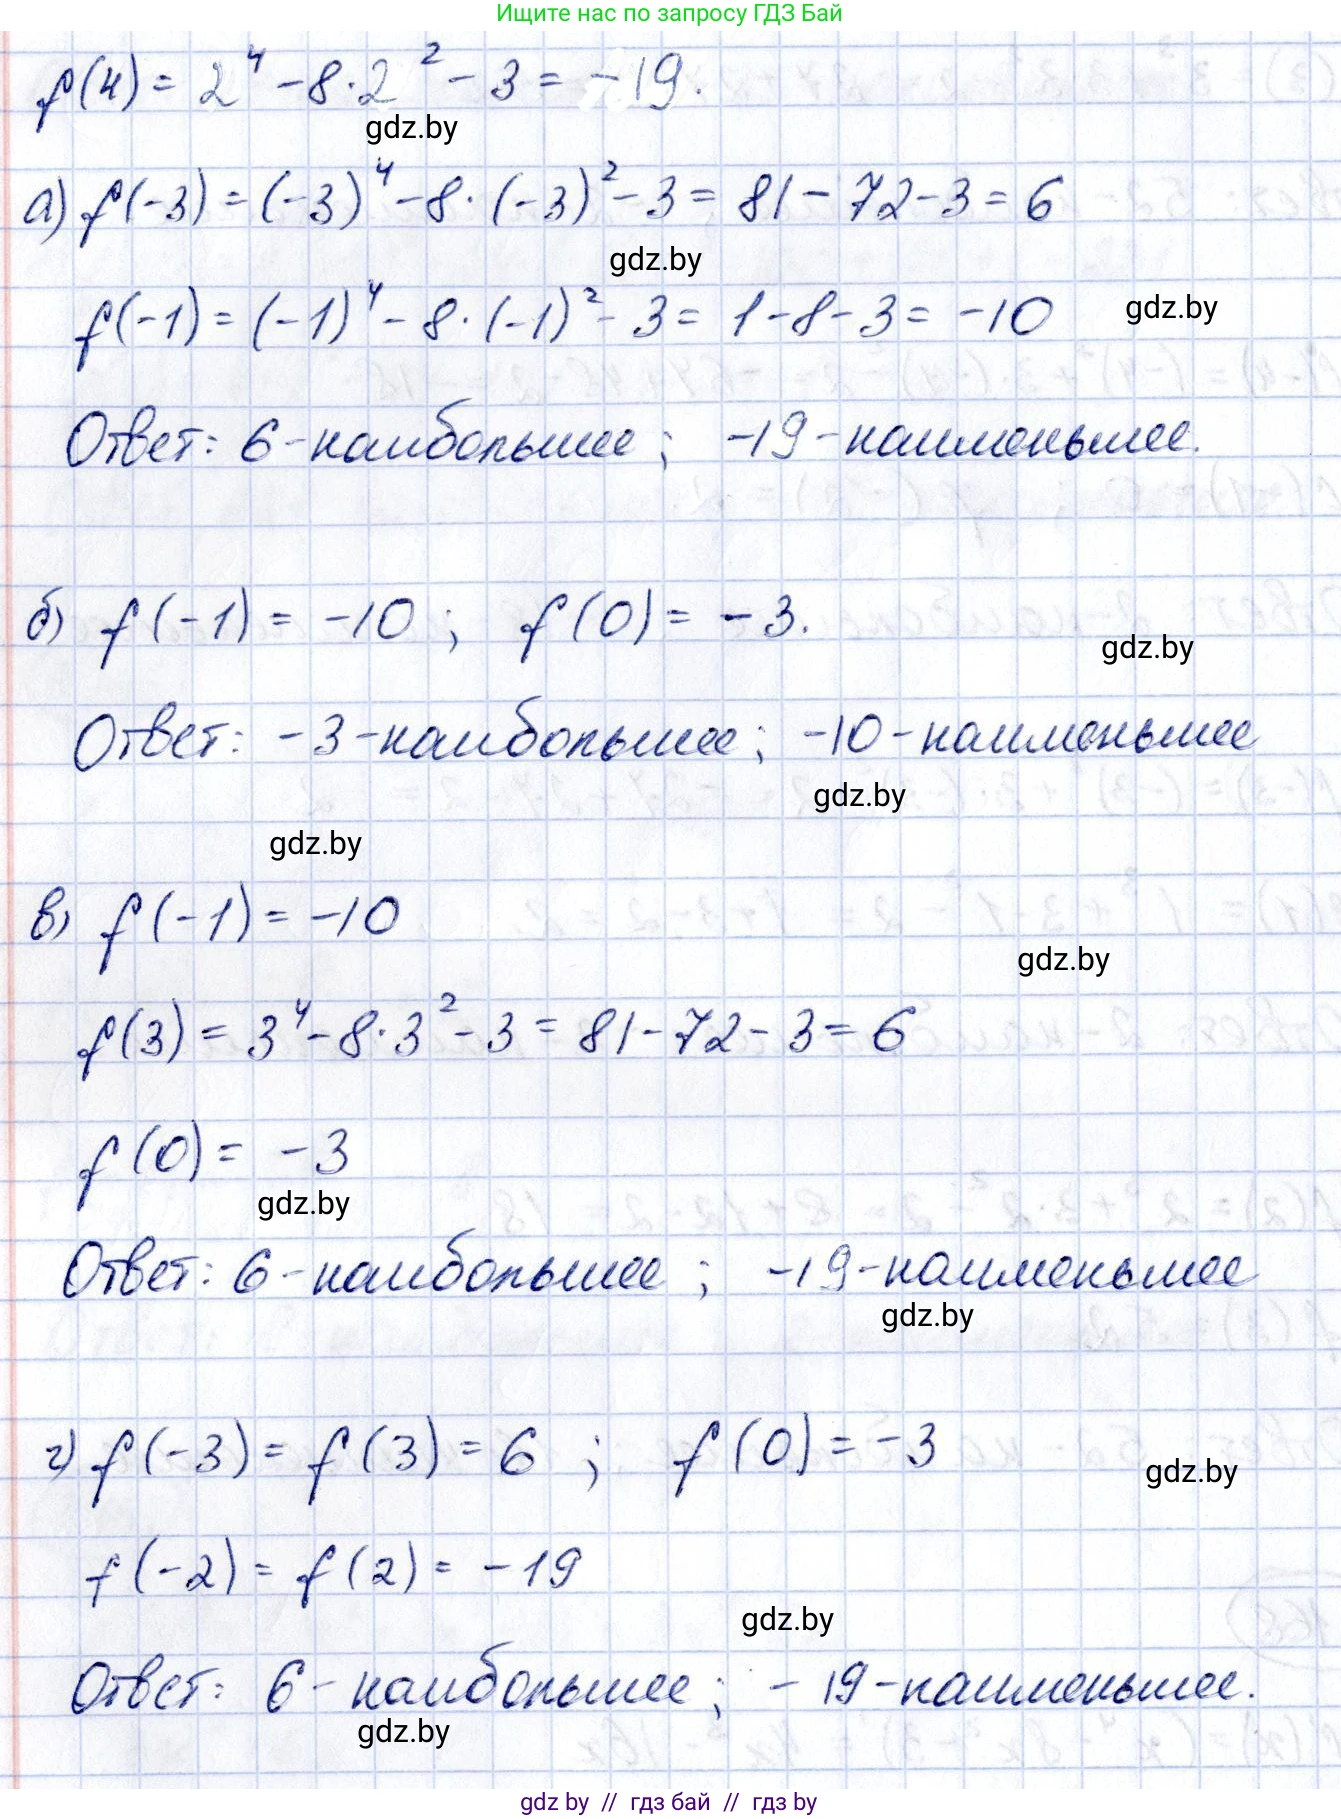 Ищите нас по запросу ГДЗ Бай
f(4) = 2⁴ - 8·2² - 3 = -19.
gdz.by
а) f(-3) = (-3)⁴ - 8·(-3)² - 3 = 81 - 72 - 3 = 6
gdz.by
f(-1) = (-1)⁴ - 8·(-1)² - 3 = 1 - 8 - 3 = -10 gdz.by
Ответ: 6 - наибольшее; -19 - наименьшее.
б) f(-1) = -10; f(0) = -3.
gdz.by
Ответ: -3 - наибольшее; -10 - наименьшее
gdz.by
gdz.by
в) f(-1) = -10
gdz.by
f(3) = 3⁴ - 8·3² - 3 = 81 - 72 - 3 = 6
f(0) = -3
gdz.by
Ответ: 6 - наибольшее; -19 - наименьшее
gdz.by
г) f(-3) = f(3) = 6; f(0) = -3
gdz.by
f(-2) = f(2) = -19
gdz.by
Ответ: 6 - наибольшее; -19 - наименьшее.
gdz.by
gdz by // гдз бай // гдз by